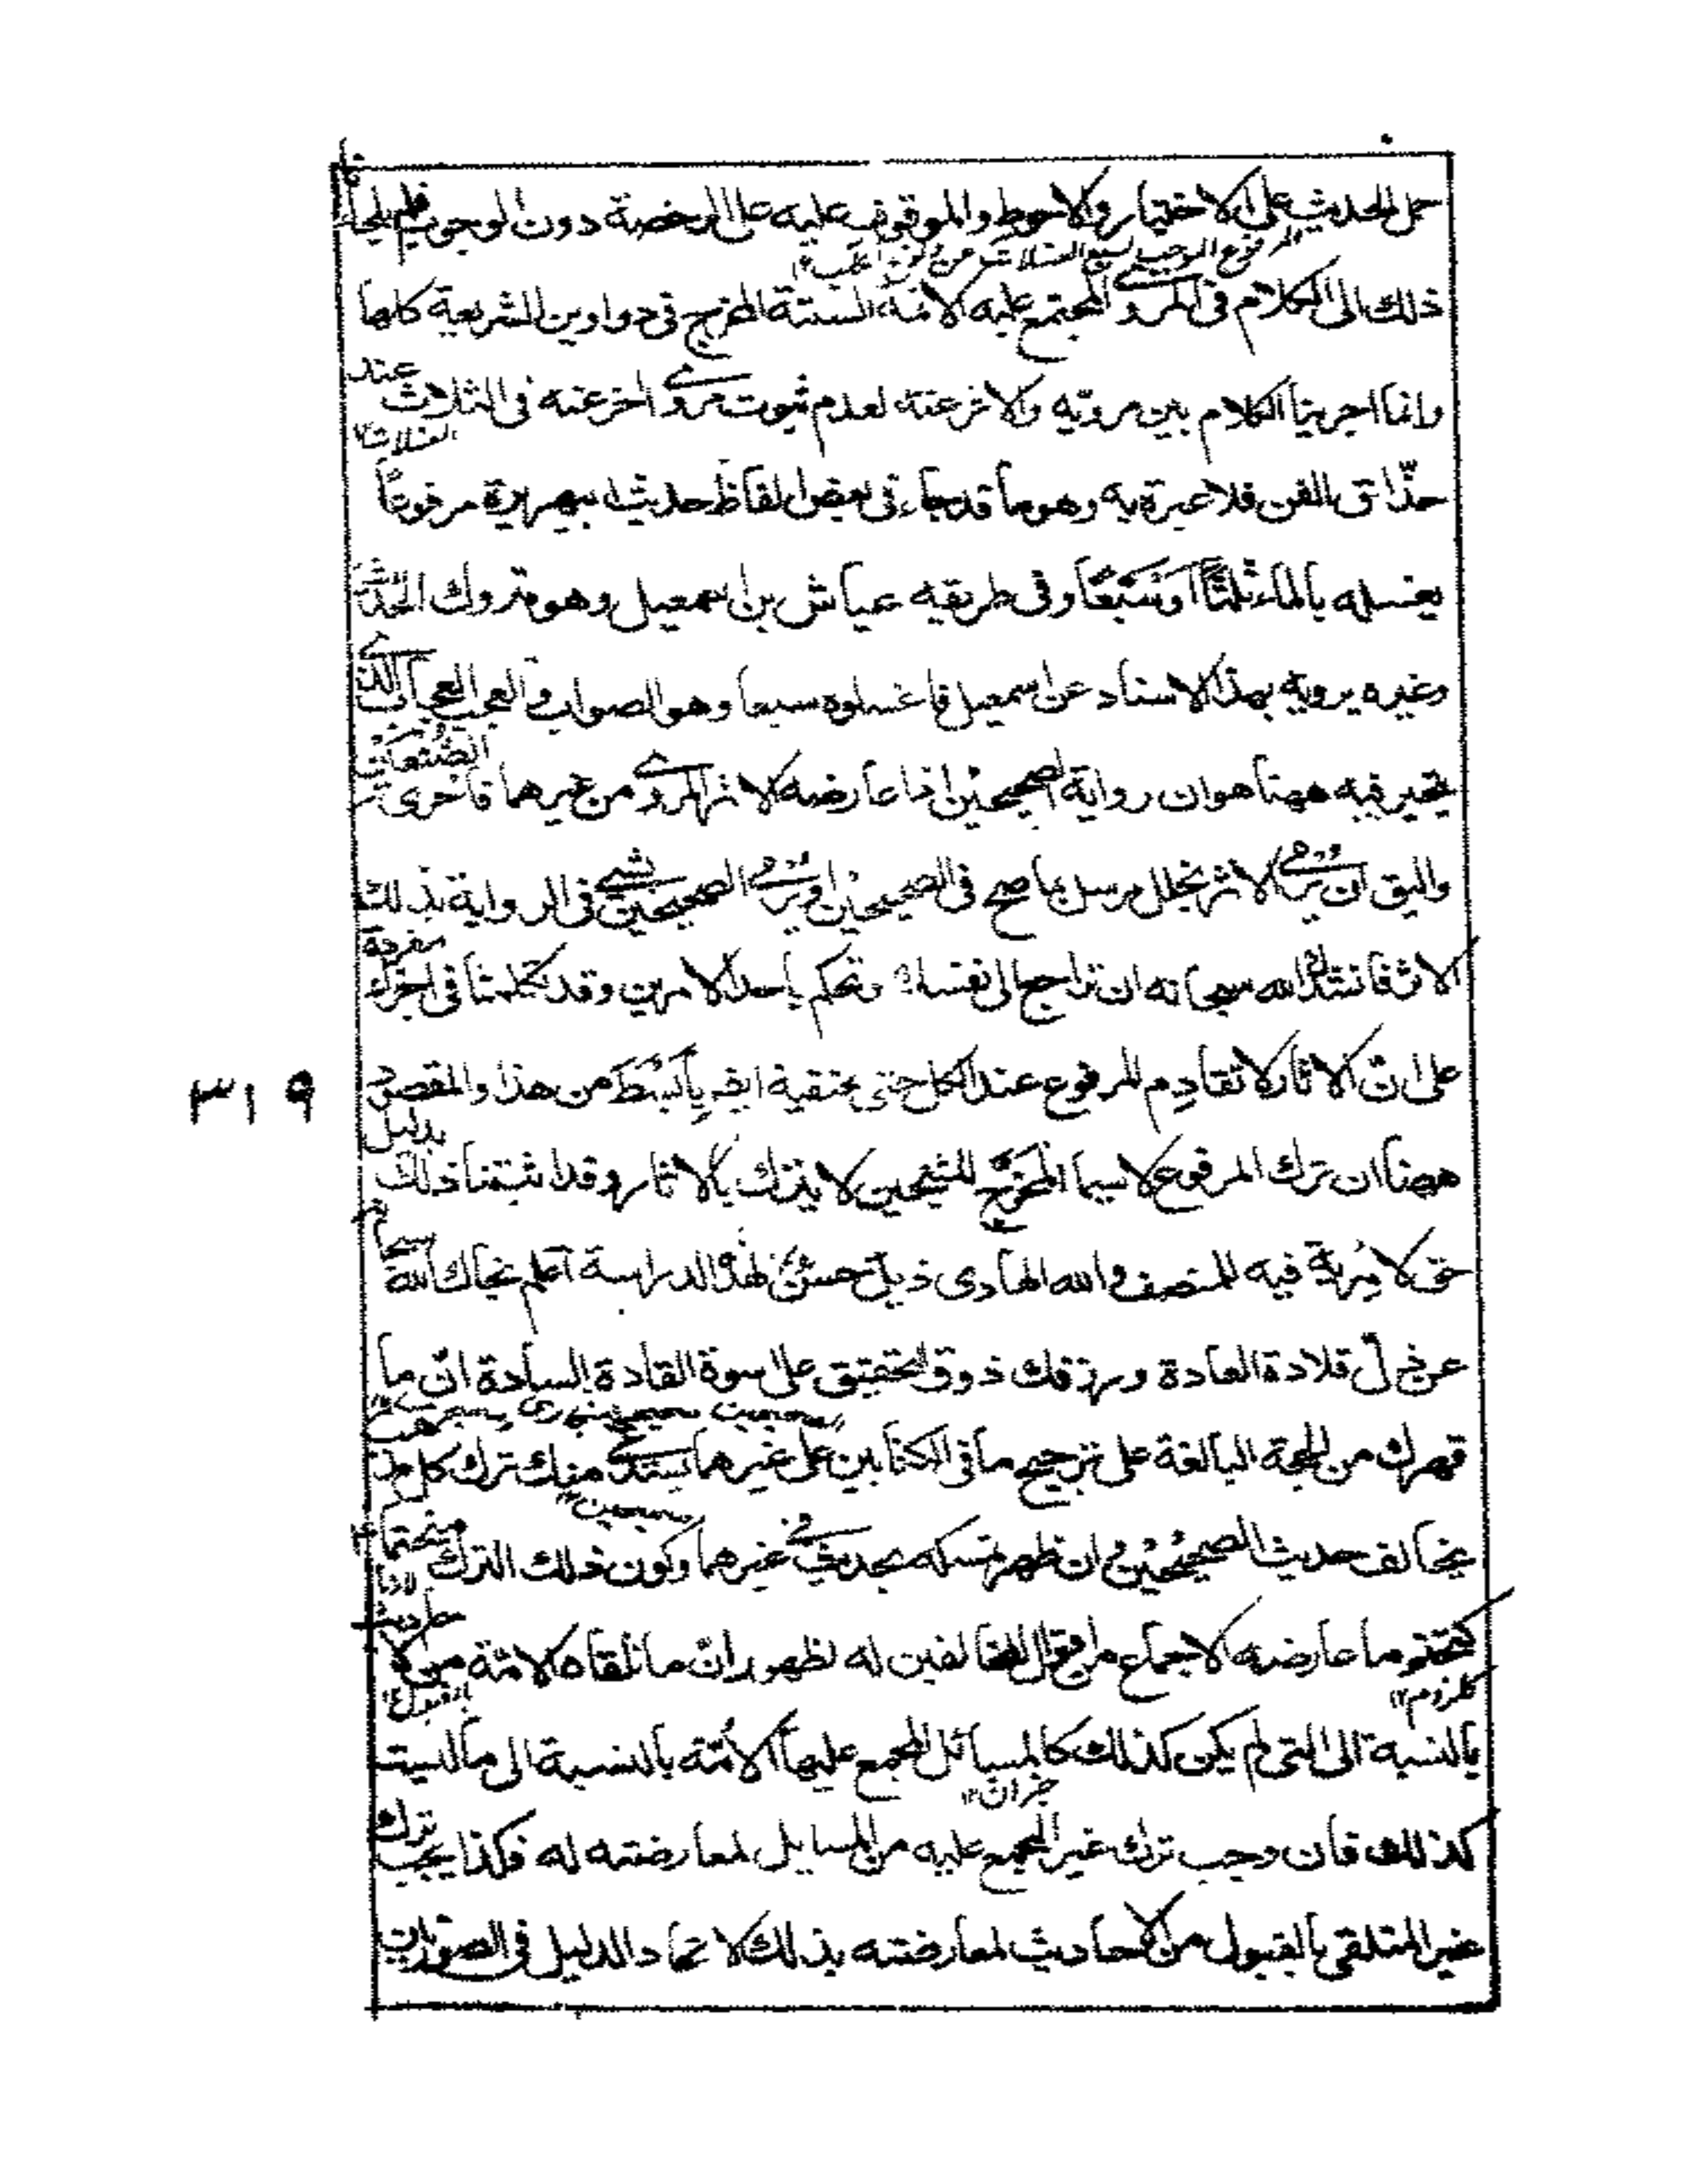 حمل الحديث على الاختيار والاحوط والموقوف عليه على الرخصة دون الوجوب فلم يلجأنا
المرفوع الموجب لسبع الغسلات من ولوغ الكلب
ذلك الى الكلام فى المروى المجتمع عليه الائمة الستة المخرج فى دواوين الشريعة كلها
وانما اجرينا الكلام بين مرويّه والاثر عنه لعدم ثبوت مروى اخر عنه فى الثلاث عند
الغسلات
حذّاق الفن فلا عبرة به وهو ما قد جاء فى بعض الفاظ حديث ابيهريرة مرفوعًا
يغسله بالماء ثلثًا اَوْ سَبْعًا وفى طريقه عياش بن اسمعيل وهو متروك الحديث
وغيره يرويه بهذا الاسناد عن اسمعيل فاغسلوه سبعا وهو الصواب والعجب العجاب الذى
يتحير فيه ههنا هو ان رواية الصحيحين اذا عارضه الاثر المروى من غيرهما فاحرى
الصُّنْعَيْن
واليق ان يرمى الاثر بخلل مرسل بما صح فى الصحيحين او يرمى الصحيحين بشى فى الرواية بذلك
الاثر فانشدك الله سبحانه ان تراجع الى نفسك وتحكم باحد الامرين وقد تكلمنا فى اجزاء
مفردة
على انّ الاثار لا تقادِم المرفوع عند الكل حتى عند الحنفية ايضا بِاَبْسَطَ من هذا والمقصود
ههنا ان ترك المرفوع لاسيما المُخَرَّج للشيخين لا يترك بالاثار وقد اثبتنا ذلك بدليل
حتى لا مِرْيةَ فيه للمنصف والله الهادى ذيلٌ حسنٌ لهذه الدراسة اعلم نجاك الله سبحانه
عن غل قلادة العادة ورزقك ذوق التحقيق على اسوة القادة السادة انّ ما
قهرك من الحجة البالغة على ترجيح ما فى الكتابين على غيرهما يستدعى منك ترك كل مذهب
يخالف حديث الصحيحين وان ظهر تمسكه بحديث فى غيرهما وكون ذلك الترك متحتما
كتحتم ما عارضه الاجماع من اقوال المخالفين له لظهور انّ ما تلقاه الامّة من الاحاديث
كلزوم
بالقبول
بالنسبة الى التى لم يكن كذلك كالمسائل المجمع عليها الاُمّة بالنسبة الى ما ليست
كذلك فان وجب ترك غير المجمع عليه من المسايل لمعارضته له فكذا يجب ترك
غير المتلقى بالقبول من الاحاديث لمعارضته بذلك لاتحاد الدليل فى الصورتين
٣١٩